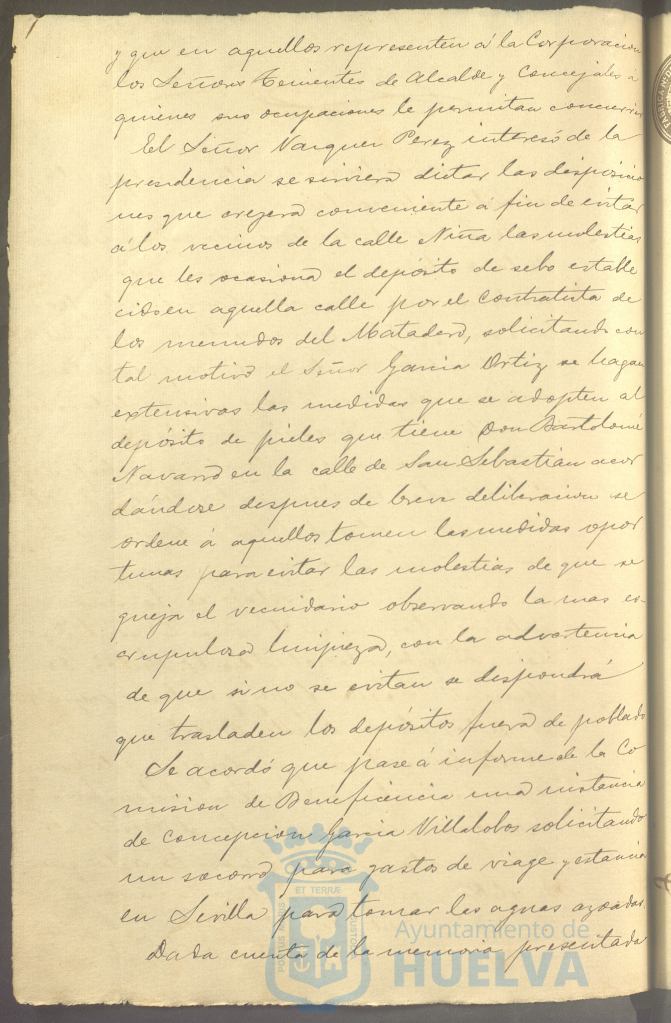 y que en aquellos representen á la Corporacion
los Señores Tenientes de Alcalde y Concejales a
quienes sus ocupaciones le permitan concurrir
El Señor Vazquez Perez interesó de la
presidencia se sirviera dictar las disposicio
nes que creyera conveniente á fin de evitar
á los vecinos de la calle Niña las molestias
que les ocasiona el depósito de sebo estable
cido en aquella calle por el Contratista de
los menudos del Matadero, solicitando con
tal motivo el Señor Garcia Ortiz se hagan
extensivas las medidas que se adopten al
depósito de pieles que tiene Don Bartolomé
Navarro en la calle de San Sebastian acor
dándose despues de breve deliberacion se
ordene á aquellos tomen las medidas opor
tunas para evitar las molestias de que se
queja el vecindario observando la mas es-
crupulosa limpieza, con la advertencia
de que si no se evitan se dispondrá
que trasladen los depósitos fuera de poblado
Se acordó que pase á informe de la Co
mision de Beneficencia una instancia
de Concepcion Garcia Villalobos solicitando
un socorro para gastos de viage y estancia
en Sevilla para tomar las aguas azoadas.
Dada cuenta de la memoria presentada
Ayuntamiento de
HUELVA